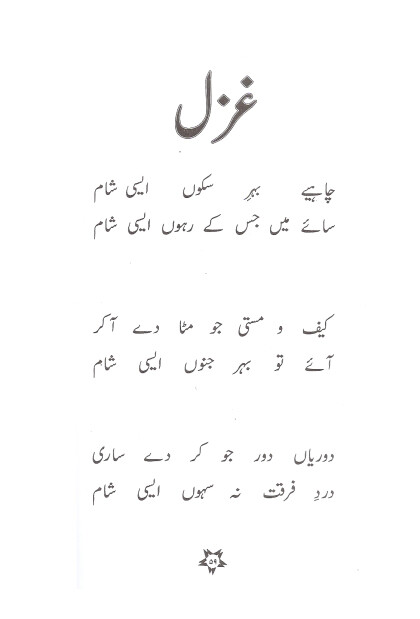 غزل
چاہیے بہرِ سکوں ایسی شام
سائے میں جس کے رہوں ایسی شام
کیف و مستی جو مٹا دے آ کر
آئے تو بہر جنوں ایسی شام
دوریاں دور جو کر دے ساری
دردِ فرقت نہ سہوں ایسی شام
۵۹